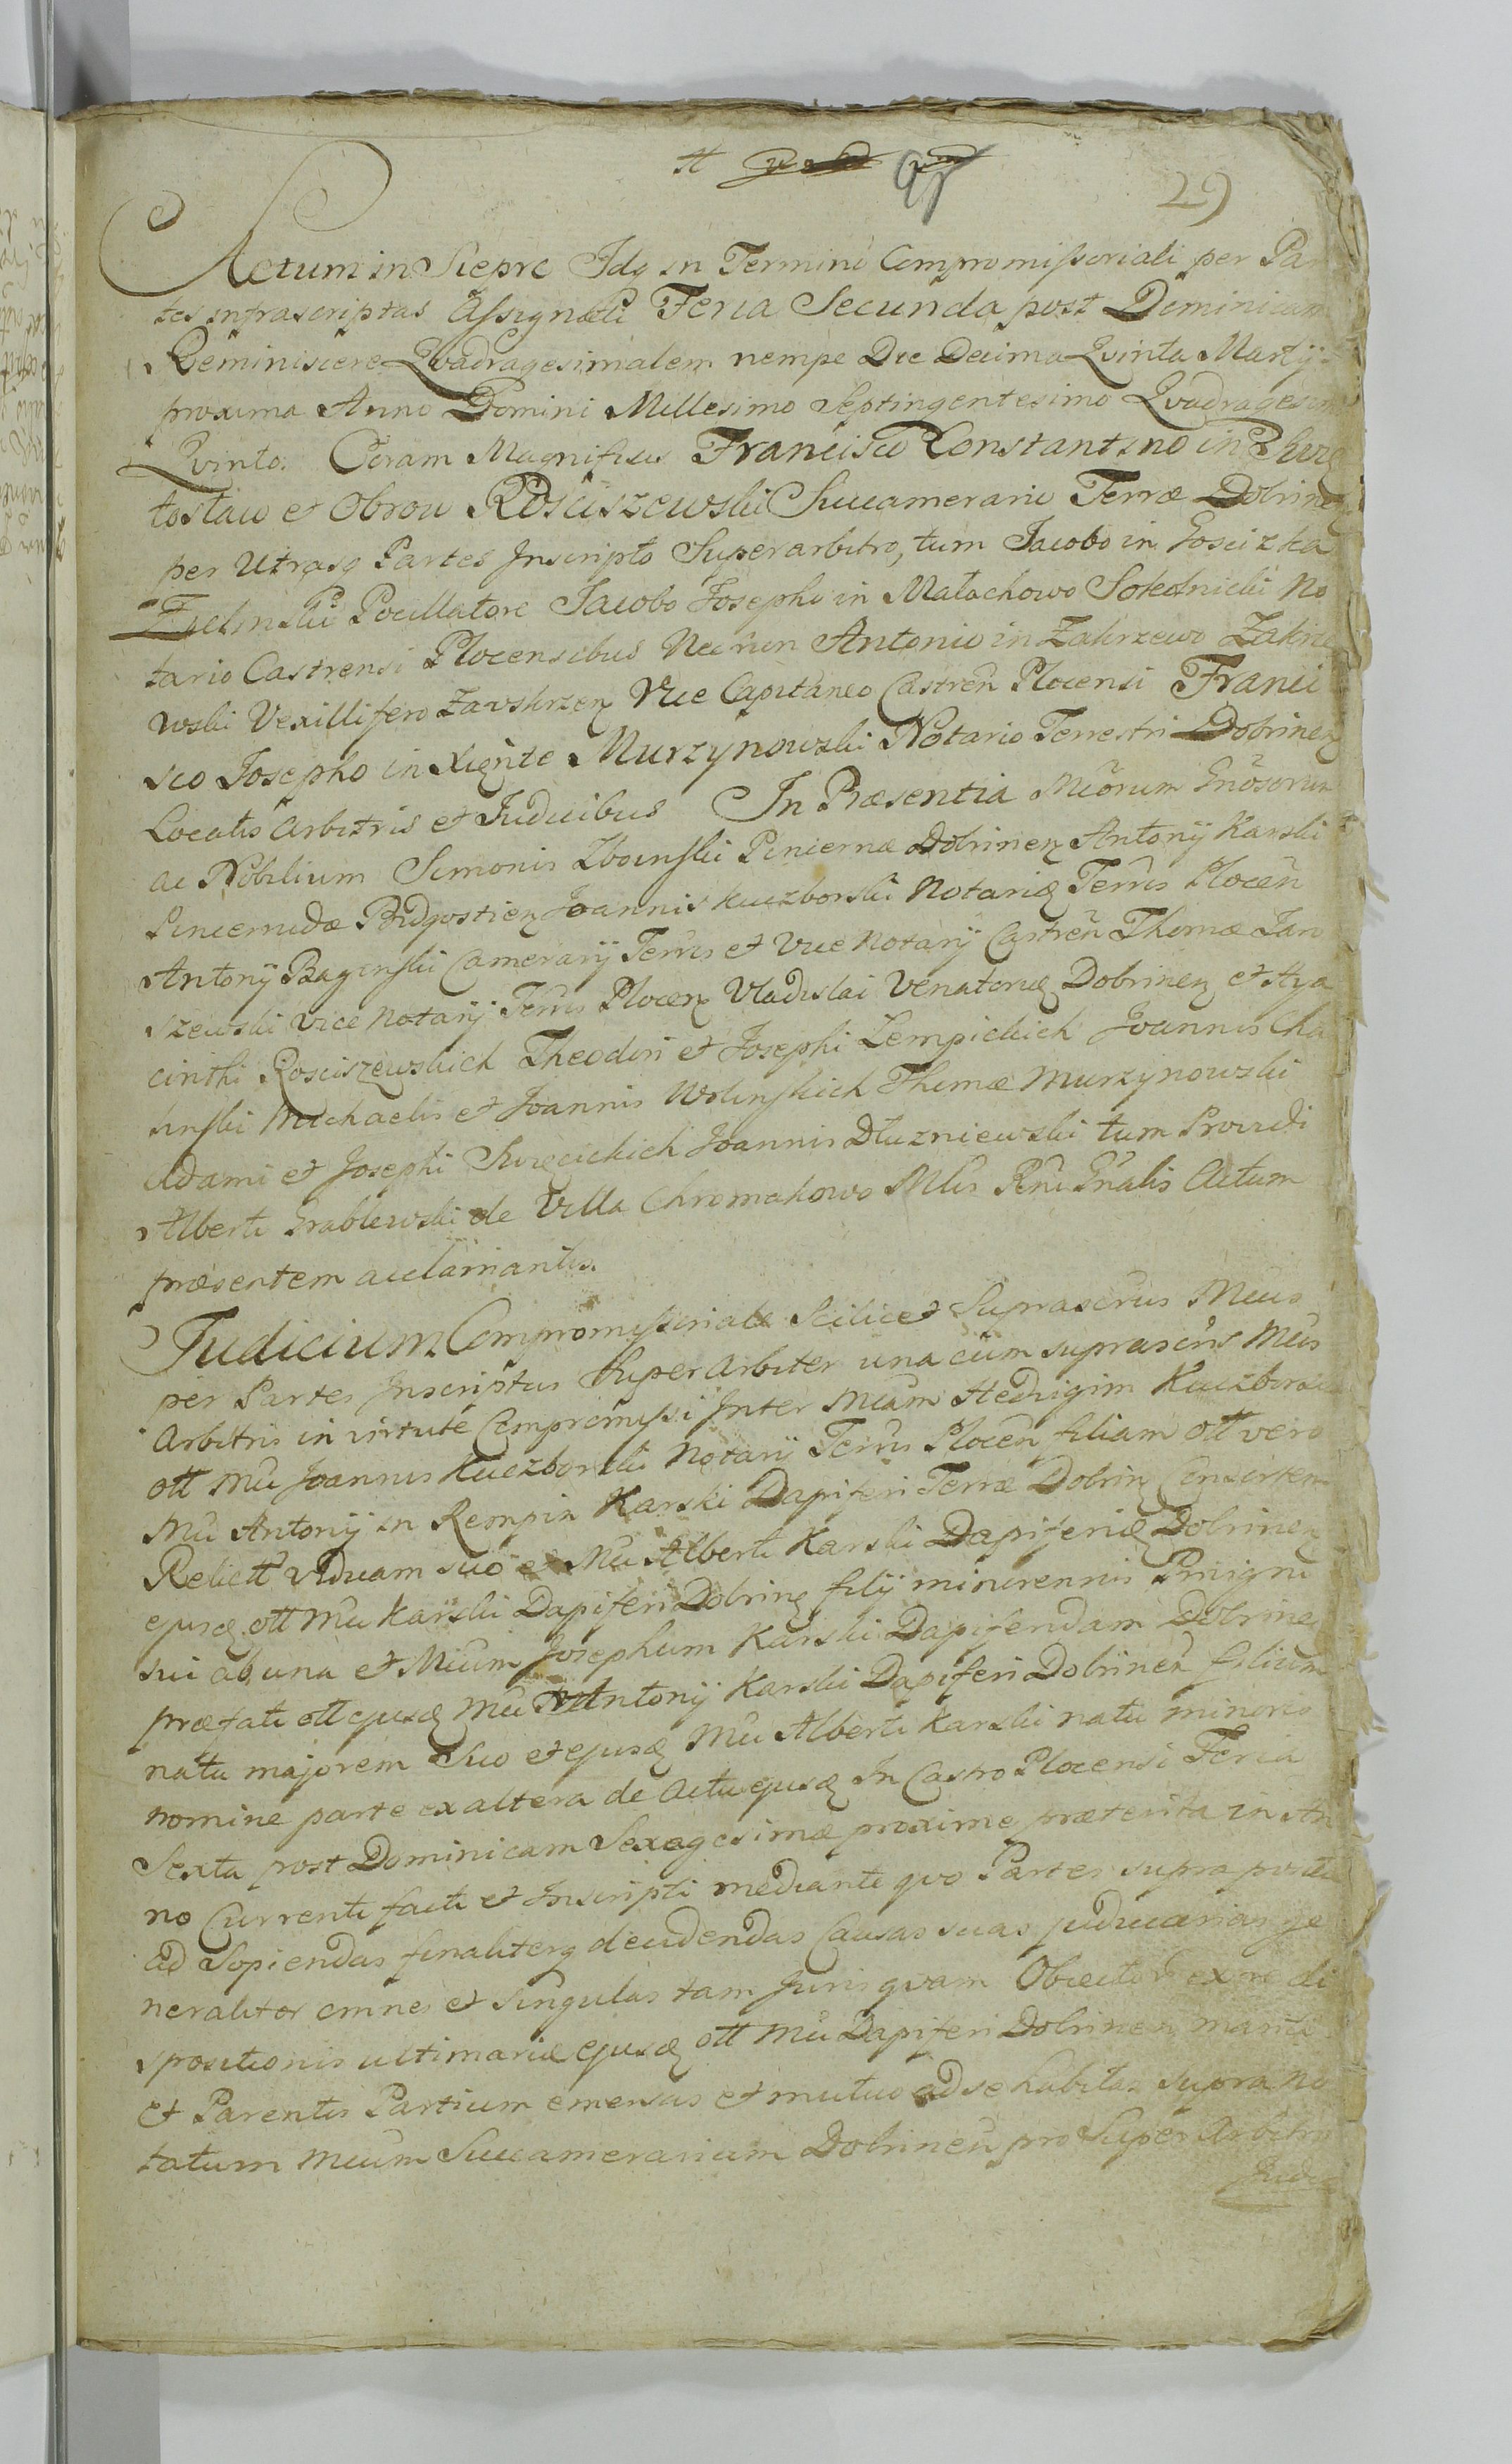 29
Actum in Siepre Idq in Termino Compromissoriali per Par
tes infrascriptas Assignati Feria Secunda post Dominicam
Reminiscere Qvadragesimalem nempe Die Decima Qvinta Martij
proxima Anno Domini Millesimo Septingentesimo Qvadragesimo
Qvinto. Coram Magnificis Francisco Constantino in
tosław et Obrow Rościszewski Succamerario Terræ Dobrinen
per Utrasq Partes Inscripto Superarbitro, tum Jacobo in Goscizka
Zielinski Pocillatore Jacobo Josepho in Małachowo Sokolnicki No
tario Castrensi Plocensibus Nec non Antonio in Zakrzewo Zakrze
wski Vexillifero Zawskrzen Vice Capitaneo Castren Plocensi Franci
sco Josepho in Xięnte Murzynowski Notario Terrestri Dobrinen
Locatis Arbitris et Judicibus In Præsentia Mcorum Gnosorum
ac Nobilium Simonis Zboinski Pincernæ Dobrinen Antonij Karski
Pincernidæ Bidgostien Joannis Kuczborski Notarię Terris Plocen
Antonij Baginski Camerarij Terris et Vice Notarij Castren Thomæ Jaro
szewski Vice Notarij Terris Plocen Vladislai Venatorię Dobrinen et Hya
cinthi Rosciszewskich Theodori et Josephi Lempickich Joannis Cha
linski Michaelis et Joannis Wolinskich Thomæ Murzynowski
Adami et Josephi Swięcickich Joannis Dłuzniewski tum Providi
Alberti Grablewski de Villa Chromakowo Mlis Rni Gnalis Actum
præsentem acclamantis.
Judicium Compromissoriale Scilicet Suprascrus Mcus
per Partes Inscriptus Superarbiter una cum suprascris Mcis
Arbitris in virtute Compromissi Inter Mcam Hedvigim Kuczborska
olt Mci Joannis Kuczborski Notarij Terris Plocen filiam olt vero
Mci Antonij in Rempin Karski Dapiferi Terræ Dobrin Consortem
Relictt viduam suo et Mci Alberti Karski Dapiferię Dobrinen
ejusd olt Mci Karski Dapiferi Dobrin filij minorennis Privigni
sui ab una et Mcum Josephum Karski Dapiferidam Dobrinen
præfati olt ejusd Mci Antonij Karski Dapiferi Dobrinen filium
natu majorem Suo et ejusd Mci Alberti Karski natu minoris
nomine parte ex altera de Actu ejusd In Castro Plocensi Feria
Sexta post Dominicam Sexagesimæ proxime præterita in An
no Currenti facti et Inscripti mediante qvo Partes supra positæ
ad Sopiendas finaliterq decidendas Causas suas judiciarias ge
neraliter omnes et Singulas tam Juris qvam Obiectorum ex re di
spositionis ultimariæ ejusd olt Mci Dapiferi Dobrinen mariti
et Parentis Partium emensas et mutuo ad se habitas supra no
tatum Mcum Succamerarium Dobrinen pro Super Arbitro
Judic